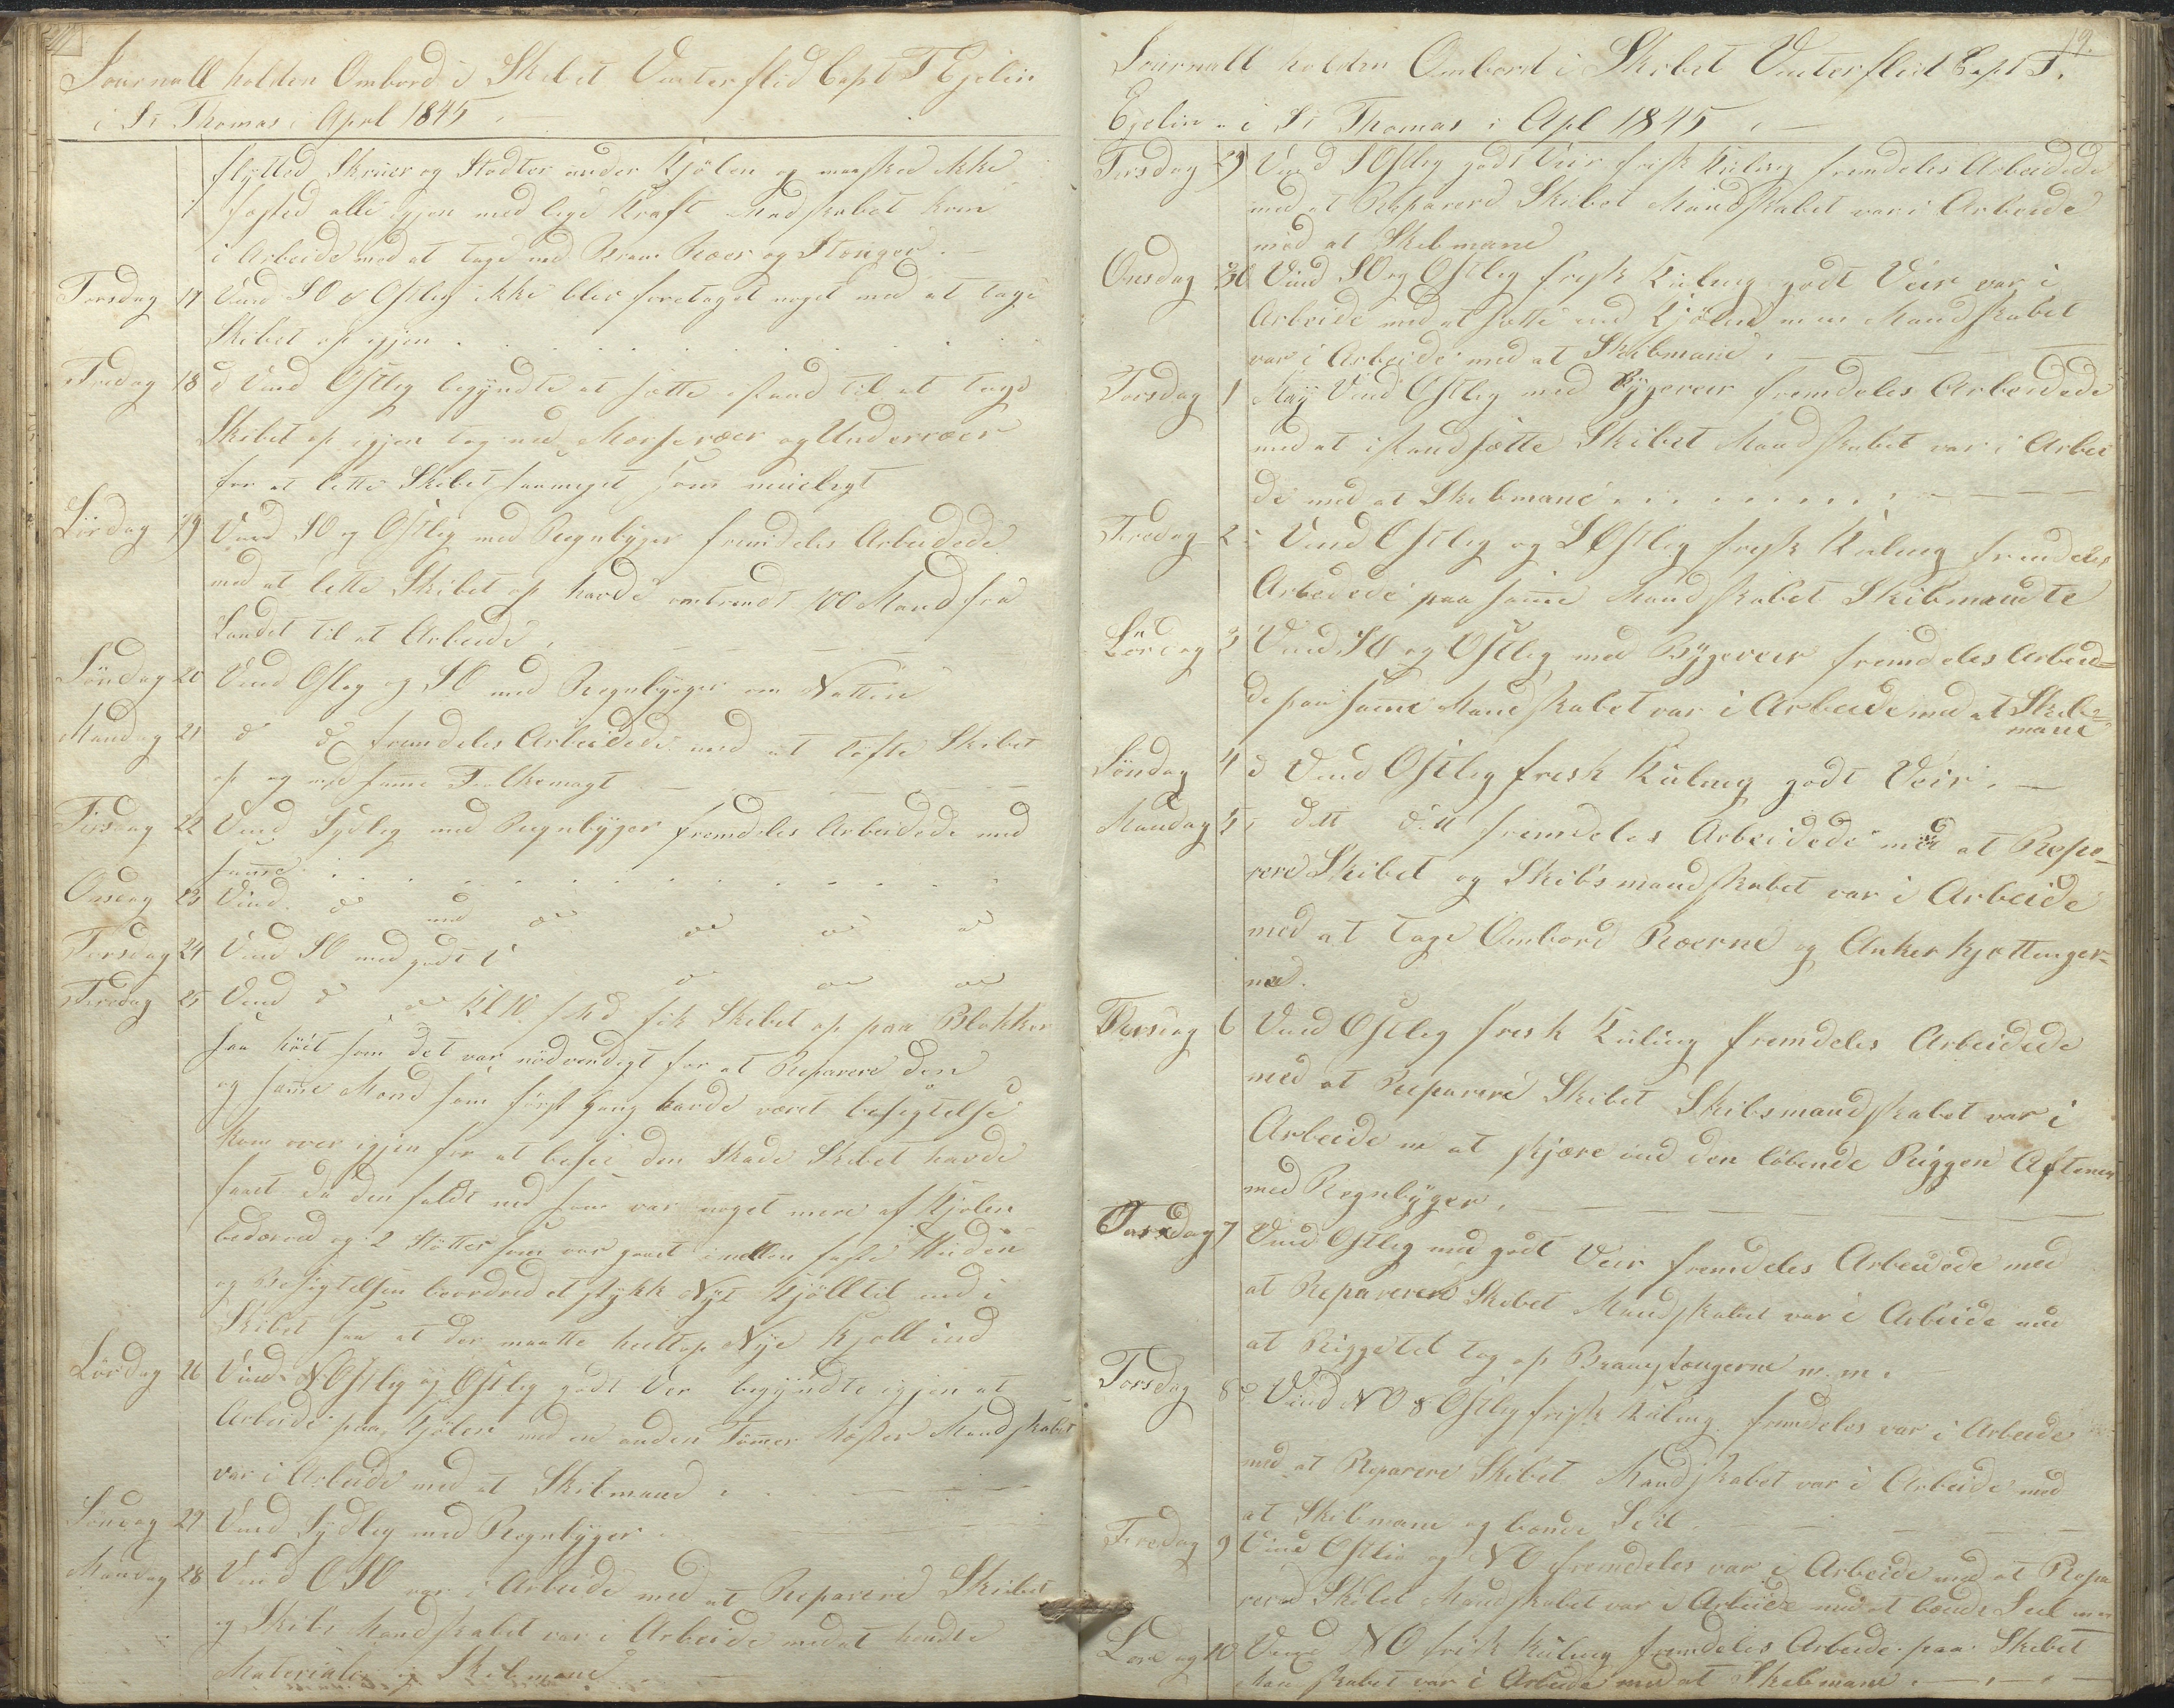 Journall holden Ombord i Skibet Vinterflid Capt T Ejelin
i St Thomas i April 1845
flytted Skruer og Stødter under Kjölen og maaskee ikke
fæsted alle igjen med lige Kraft Mandskabet kom
i Arbeide med at tage ned Bram Ræer og Stænger.
Torsdag 17 Vind SO & Ostlig ikke blev foretaget noget med at tage
Skibet op igjen
Fredag 18 d Vind Ostlig begyndte at sætte istand til at tage
Skibet op igjen tog ned Mærseræer og Underræer
for at lette Skibet saameget som mueligt
Lördag 19 Vind SO og Ostlig med Regnbyger fremdeles Arbeidede
med at lette Skibet op havde omtrendt 100 Mand fra
Landet til at Arbeide
Söndag 20 Vind Ostlig og SO med Regnbyger om Natten
Mandag 21 d d fremdeles Arbeidede med at löfte Skibet
op og med samme Folkemagt
Tirsdag 22 Vind Sydlig med Regnbyger fremdeles Arbeidede med
samme
Onsdag 23 Vind do med do do do do
Torsdag 24 Vind SO med godt V do do do
Fredag 25 Vind d do Kl 10 fik Skibet op paa Blokker
saa höit som det var nödvendigt for at Reparere den
og samme Mænd som först Gang havde været besigtelse
kom over igjen for at besee den Skade Skibet havde
faaet da den faldt ned som var noget mere af Kjölen
bedærved og 2 Stötter som var gaaet imellem
og Besigtelsen beordred et stykk Nyt Kjöll til ind i
Skibet saa at der maatte heeltop Nye Kjöll ind
Lördag 26 Vind NOstlig og Ostlig godt Ver begyndte igjen at
Arbeide paa Kjölen med en anden Tömmer Mæster Mandskabet
var i Arbeide med at Skibmand
Söndag 27 Vind Sydlig med Regnbyger
Mandag 28 Vind OSO var i Arbeide med at Reparere Skibet
og Skibs Mandskabet var i Arbeide med at hendte
Materialer og Skibmane
19.
Journall holden Ombord i Skibet Vinterflid Capt T.
Ejelin i St Thomas i Apl 1845
Tirsdag 29 Vind SOstlig godt Veir frisk Kuling fremdeles Arbeidede
med at Reparere Skibet Mandskabet var i Arbeide
med at Skibmane
Onsdag 30 Vind SO og Ostlig frisk Kuling godt Veir var i
Arbeide med at sætte ind Kjölen m m Mandskabet
var i Arbeide med at Skibmane
Torsdag 1 May Vind Ostlig med Bygeveir fremdeles Arbeidede
med at istandsætte Skibet Mandskabet var i Arbei
de med at Skibmane
Fredag 2 Vind Ostlig og SOstlig frisk Kuling fremdeles
Arbeidede paa samme Mandskabet Skibmandte
Lördag 3 Vind SO og Ostlig med Bygeveir fremdeles Arbeid=
de paa samme Mandskabet var i Arbeide med at Skib=
mane
Söndag 4 d Vind Ostlig fresk Kuling godt Veir
Mandag 5 dett ditt fremdeles Arbeidede med at Repe=
rere Skibet og Skibsmandskabet var i Arbeide
med at tage Ombord Ræerne og Anker Kjættinger=
ne.
Tirsdag 6 Vind Ostlig fresk Kuling fremdeles Arbeidede
med at Reeparere Skibet Skibsmandskabet var i
Arbeide m at skjære ind den löbende Riggen Aftenen
med Regnbyger
Onsdag 7 Vind Ostlig med godt Veir fremdeles Arbeidede med
at Reparere Skibet Mandskabet var i Arbeide med
at Rigge til tog op Bramstængerne m. m.
Torsdag 8 d Vind NO & Ostlig frisk Kuling fremdeles var i Arbeide
med at Reparere Skibet Mandskabet var i Arbeide med
at Skibmane og bænde Seil
Fredag 9 Vind Ostlig og NO fremdeles var i Arbeide med at Repa
rere Skibet Mandskabet var i Arbeide med at bænde Seil m m
Lördag 10 Vind NO frisk Kuling fremdeles Arbeide paa Skibet
Mandskabet var i Arbeide med at Skibmane